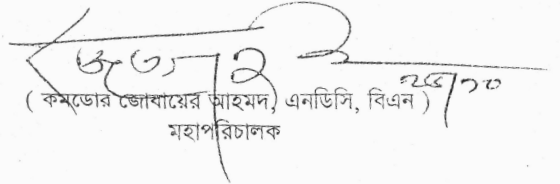 ( কমডোর জোবায়ের আহমদ, এনডিসি, বিএন )
মহাপরিচালক